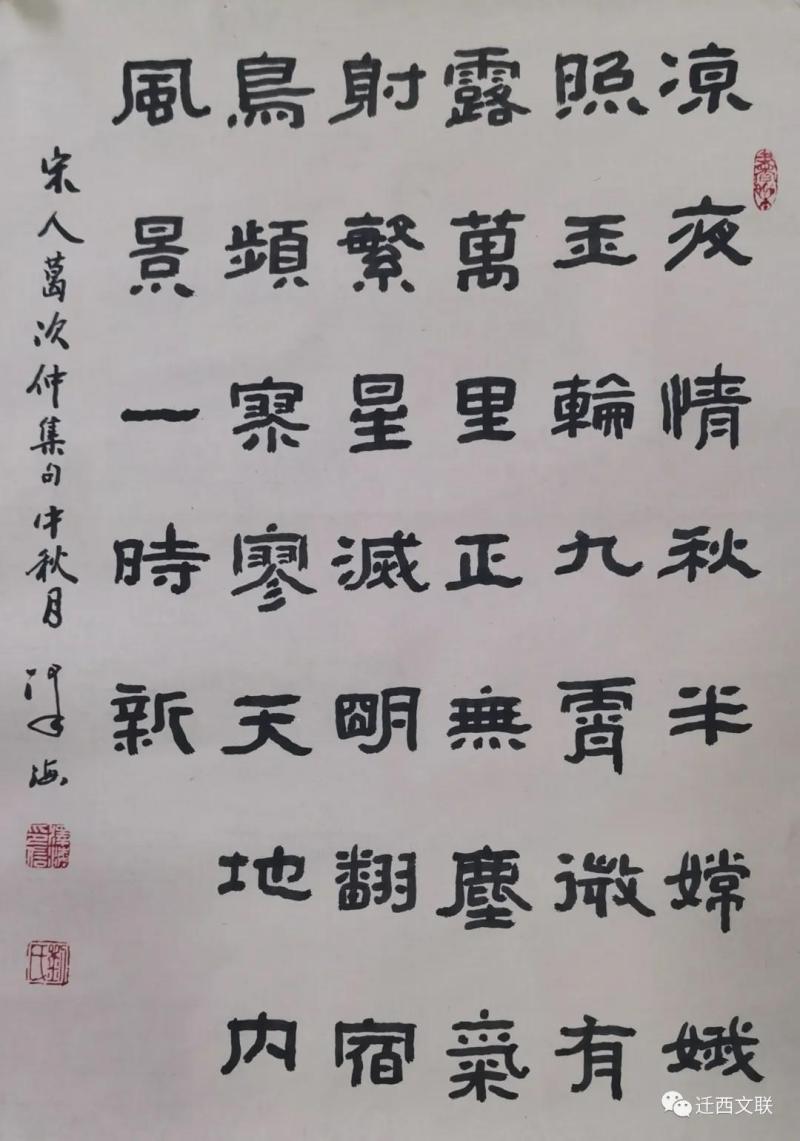 凉夜情秋半嫦娥
照玉輪九霄微有
露萬里正無塵氣
射繁星滅明翻宿
鳥頻寥廖天地内
風景一時新
宋人葛次仲集句中秋月
海
迁西文联